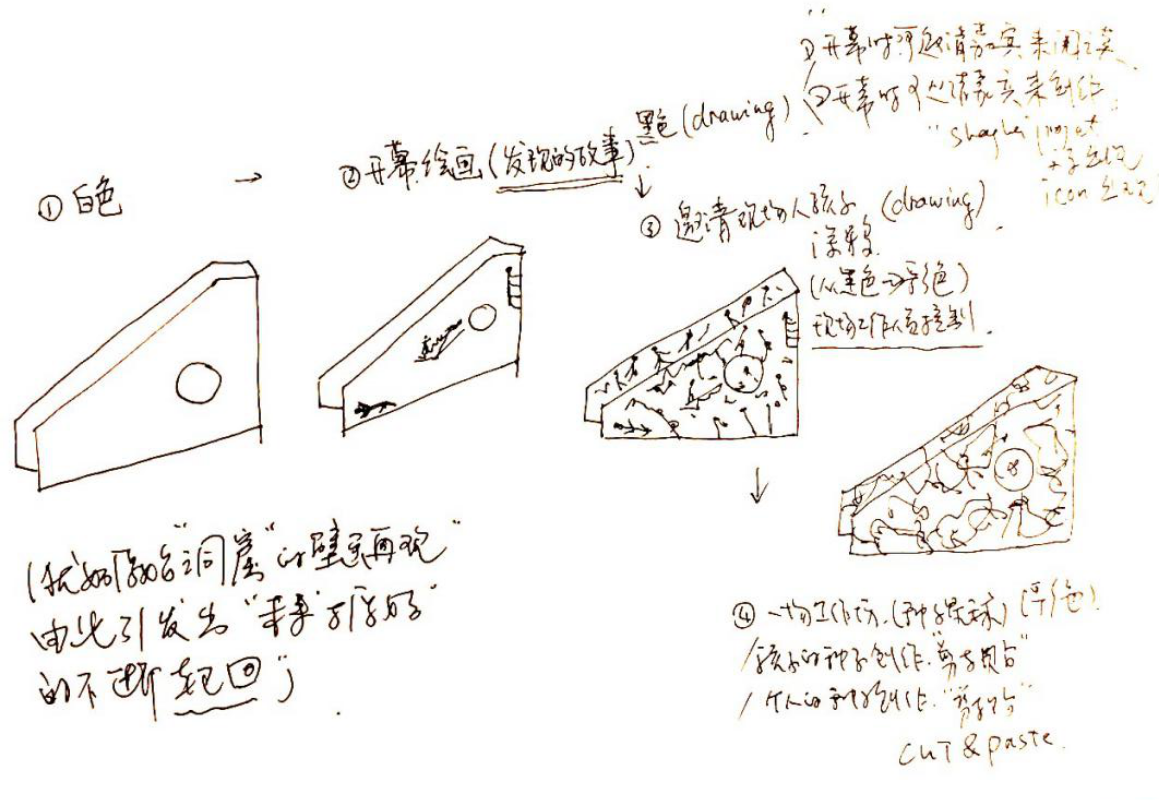 ① 白色
→
② 开幕绘画(发现的故事)
黑色(drawing)
① 开幕时可邀请嘉宾来阅读
② 开幕时可邀请嘉宾来创作
"shaghai projet
icon 出现
③ 邀请现场人孩子 (drawing)
(从黑色→彩色)
现场工作人员控制.
"洞窟"的壁画再现"
由此引发出"未来
的不断起回")
④ 一场工作坊.(种子 (彩色)
/孩子的种子创作."剪与贴"
/个人的 创作.
CUT & paste.